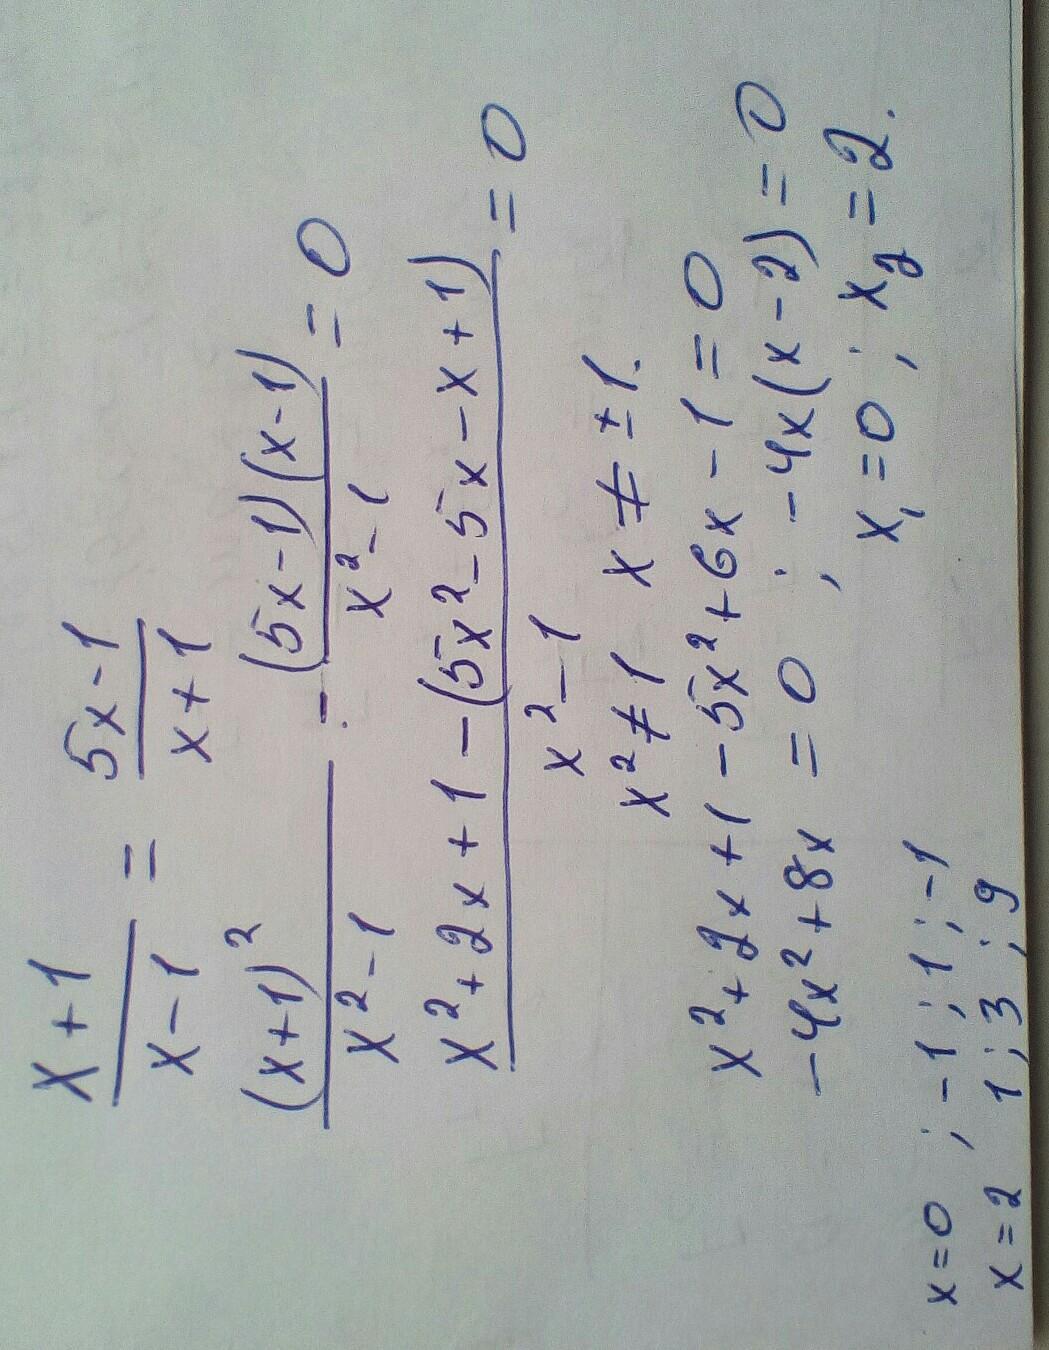 x+1/x−1 = 5x−1/x+1
(x+1)²/x²−1 − (5x−1)(x−1)/x²−1 = 0
x²+2x+1−(5x²−5x−x+1)/x²−1 = 0
x²≠1 x≠±1.
x²+2x+1−5x²+6x−1=0
−4x²+8x=0 ; −4x(x−2)=0
x₁=0 ; x₂=2.
x=0 ; −1 ; 1 ; −1
x=2 1 ; 3 ; 9